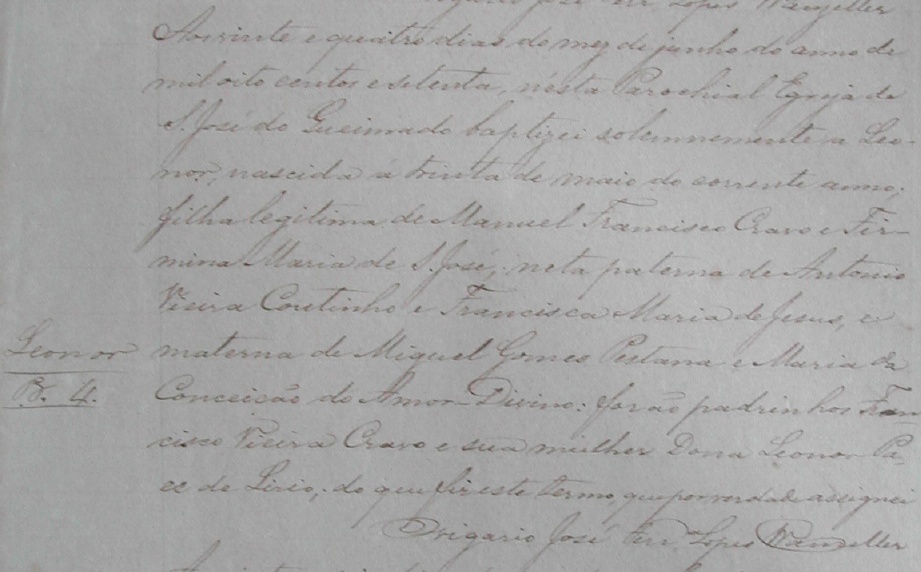 Vigario José Ferr. Lopes Wanzeller
Aos vinte e quatro dias do mez de junho do anno de
mil oito centos e setenta, nésta Parochial Egreja de
S. José do Queimado baptizei solemnemente a Leo-
nor, nascida a trinta de maio do corrente anno;
filha legitima de Manuel Francisco Cravo e Fir-
mina Maria de S. José; neta paterna de Antonio
Vieira Coutinho e Francisca Maria de Jesus, e
Leonor
materna de Miguel Gomes Pestana e Maria da
B. 4.
Conceisão do Amor-Divino: forão padrinhos Fran
cisco Vieira Cravo e sua mulher Dona Leonor Pa-
de Lirio; do que fiz este termo, que por verdade assignei
O vigario José Ferr. Lopes Wanzeller